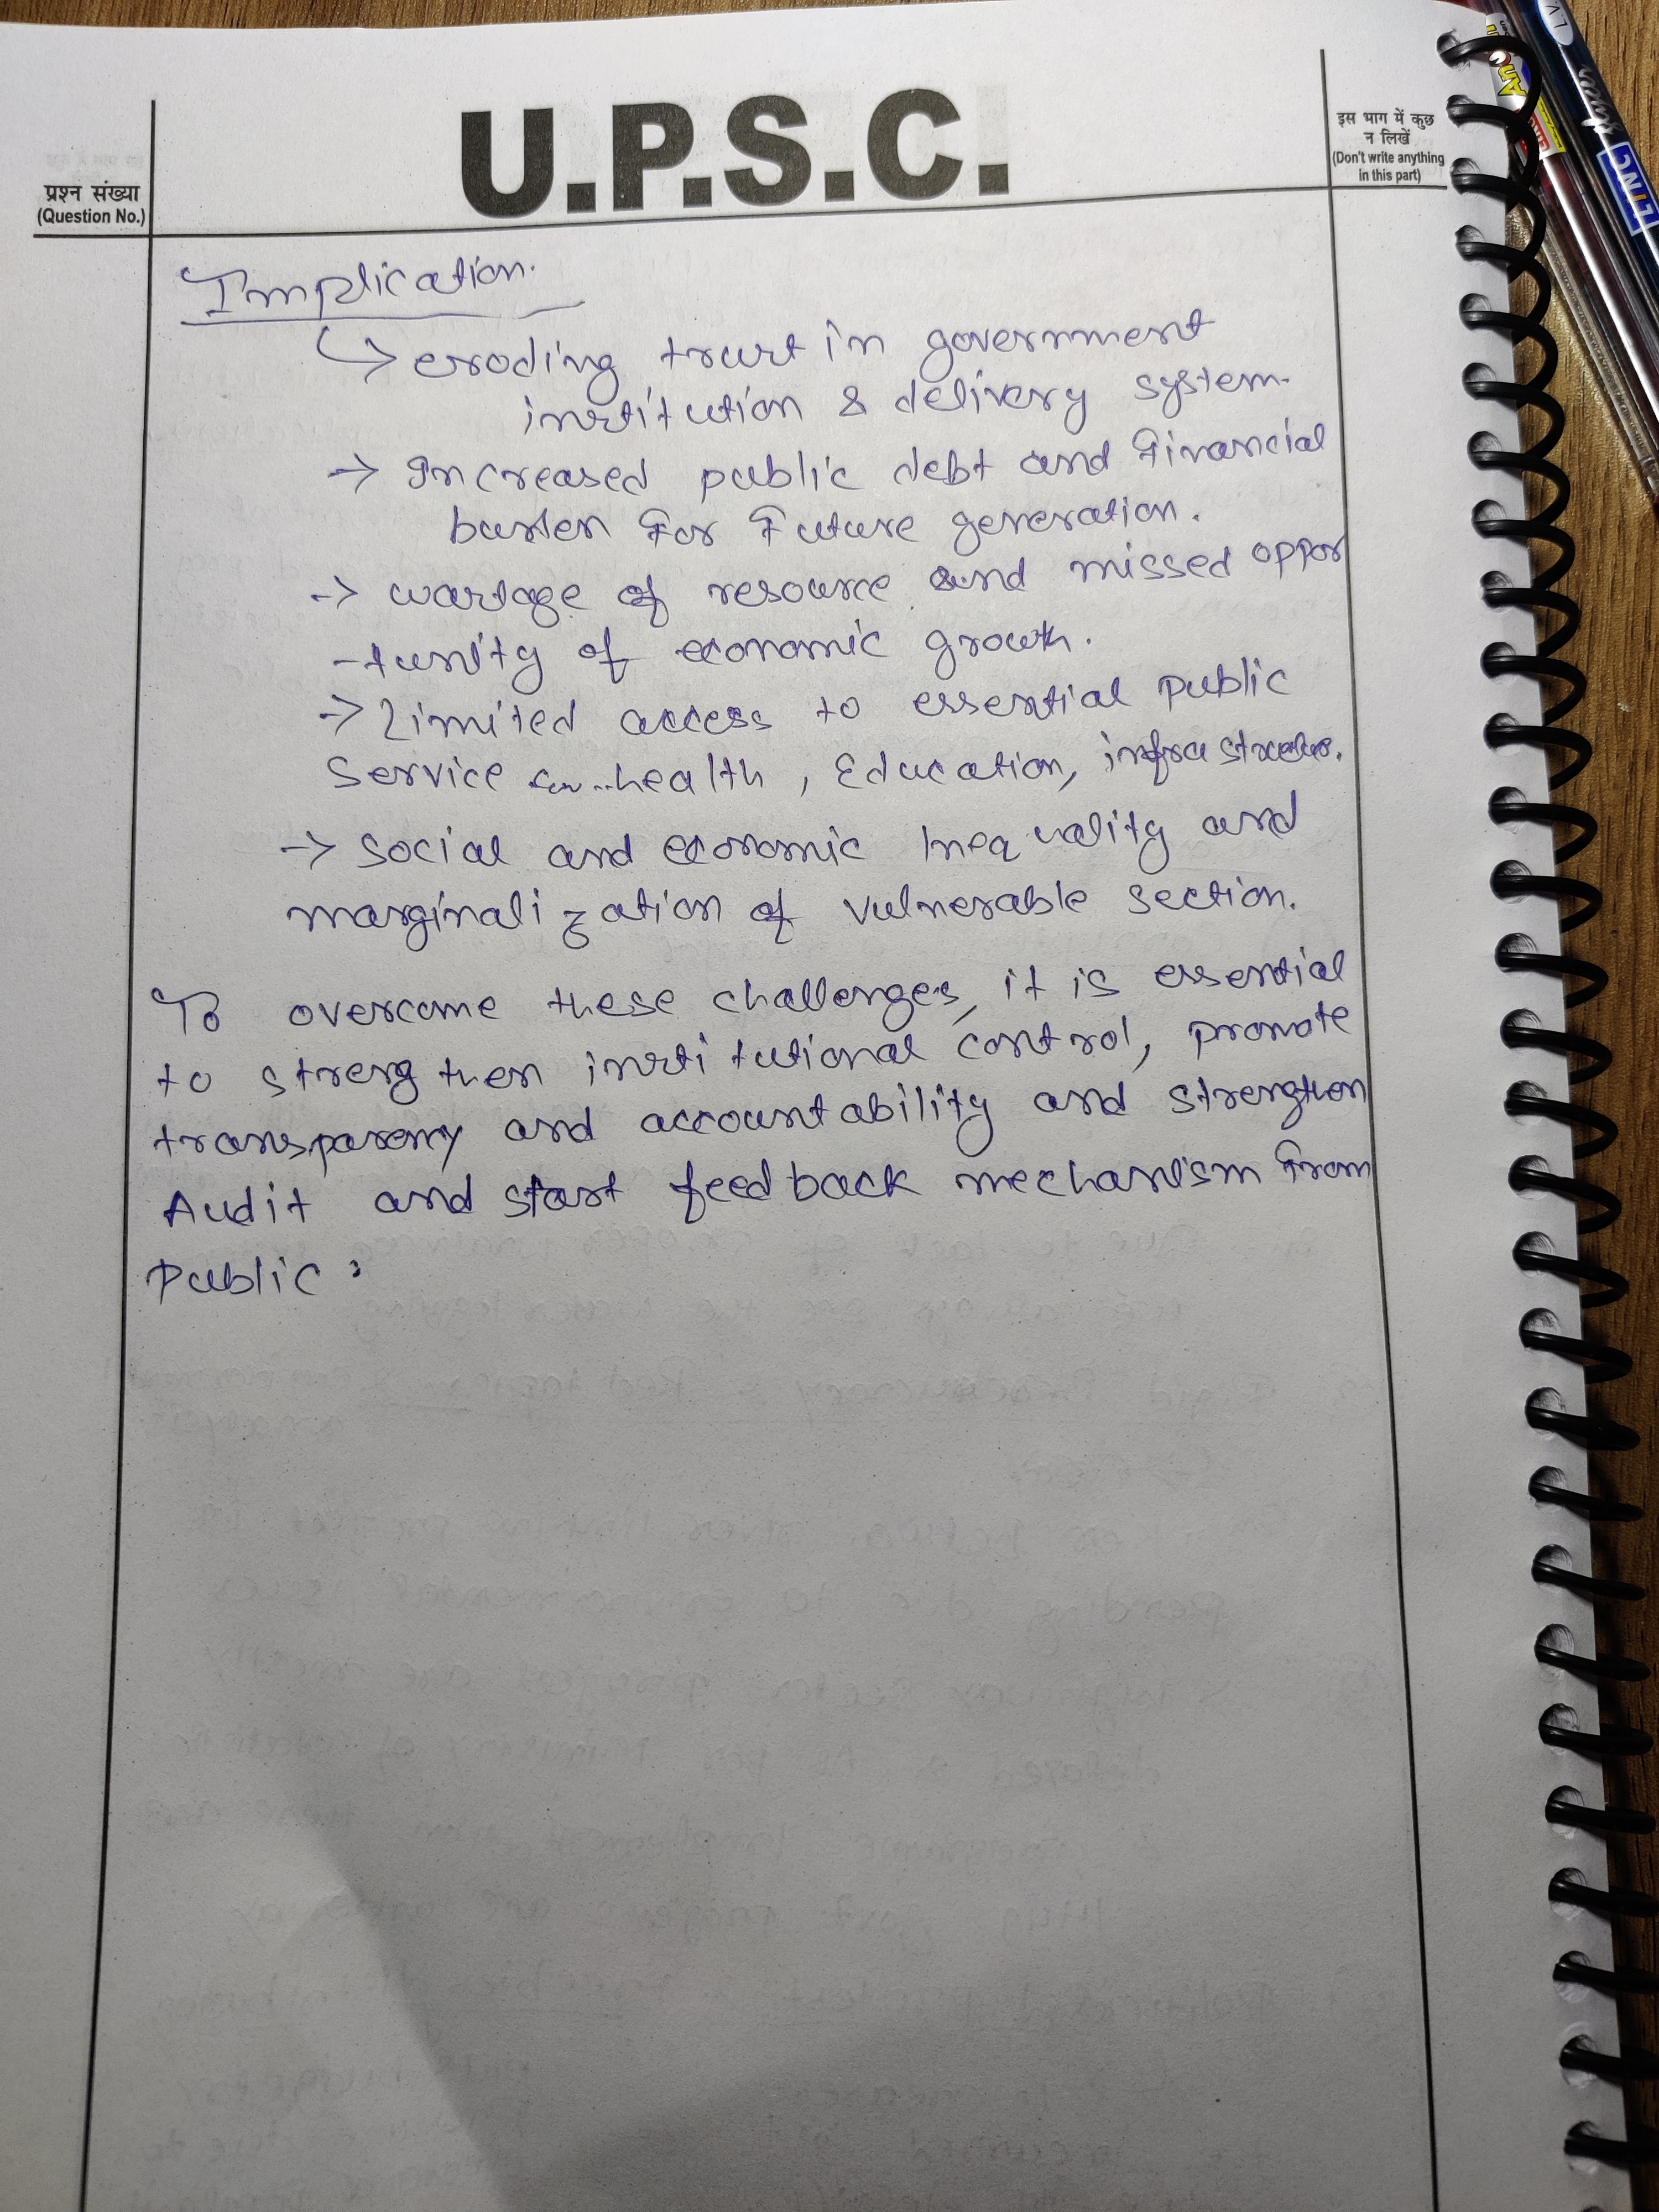 U.P.S.C.
प्रश्न संख्या
(Question No.)
इस भाग में कुछ
न लिखें
(Don't write anything
in this part)
Implication.
↳ eroding trust in government
institution & delivery system.
→ Increased public debt and financial
burden for future generation.
→ wastage of resource and missed oppor
-tunity of economic growth.
→ Limited access to essential public
service health, Education, infrastructure.
→ social and economic Inequality and
marginalization of vulnerable section.
To overcome these challenges, it is essential
to strengthen institutional control, promote
transparency and accountability and strengthen
Audit and start feedback mechanism from
Public.
LINC